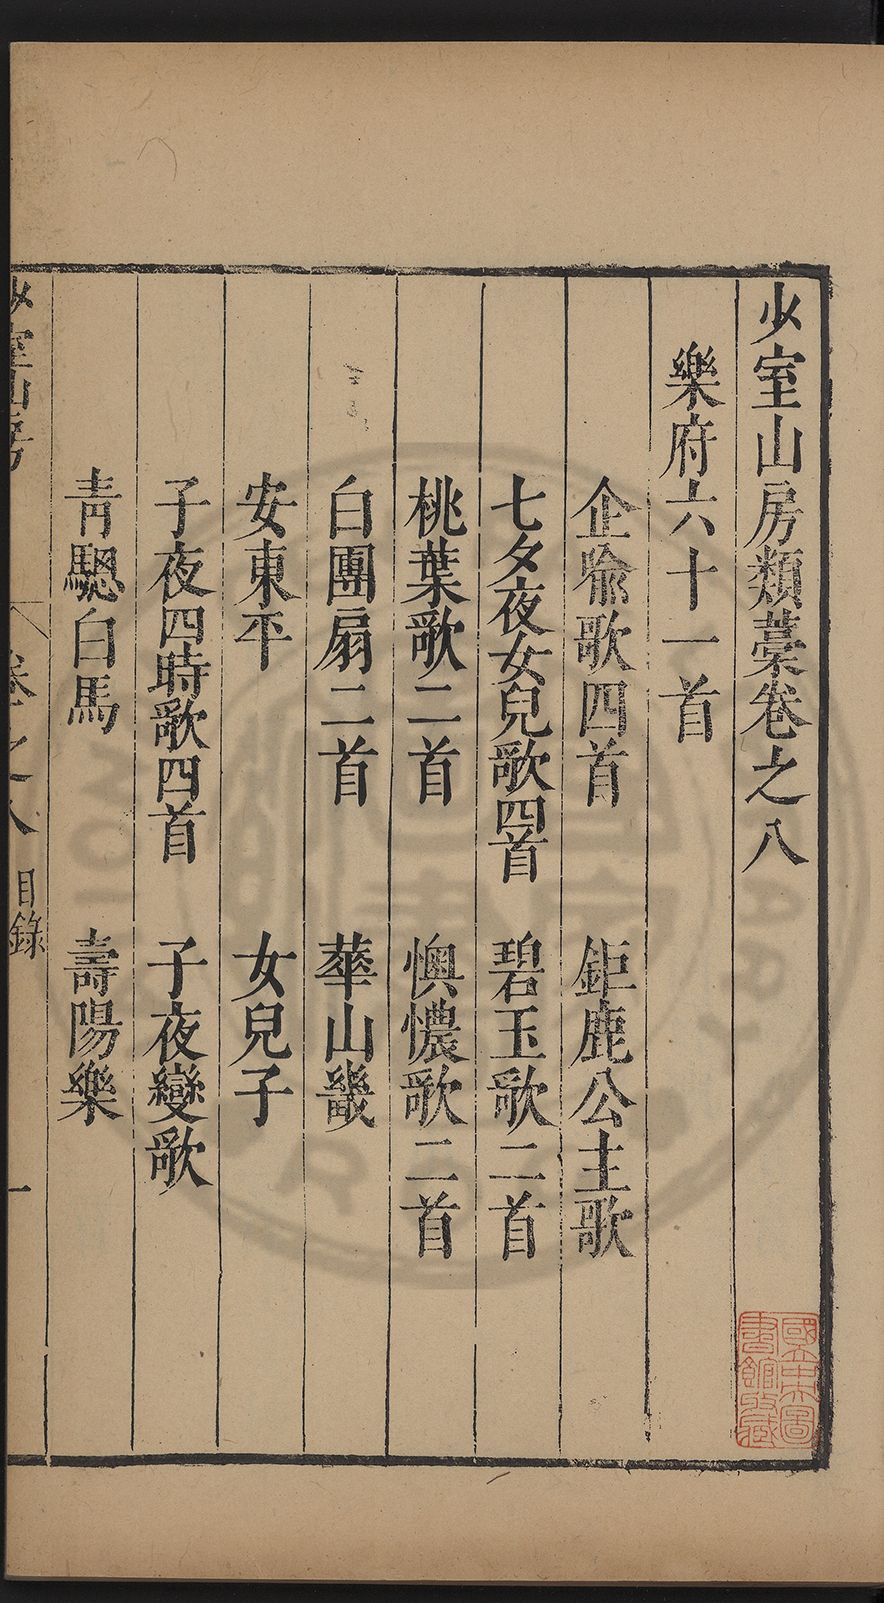 少室山房類藁卷之八
樂府六十一首
企喩歌四首　鉅鹿公主歌
七夕夜女兒歌四首　碧玉歌二首
桃葉歌二首　懊憹歌二首
白團扇二首　華山畿
安東平　女兒子
子夜四時歌四首　子夜變歌
青驄白馬　壽陽樂
少室山房　卷之八　目錄　一
國立中央圖書館收藏